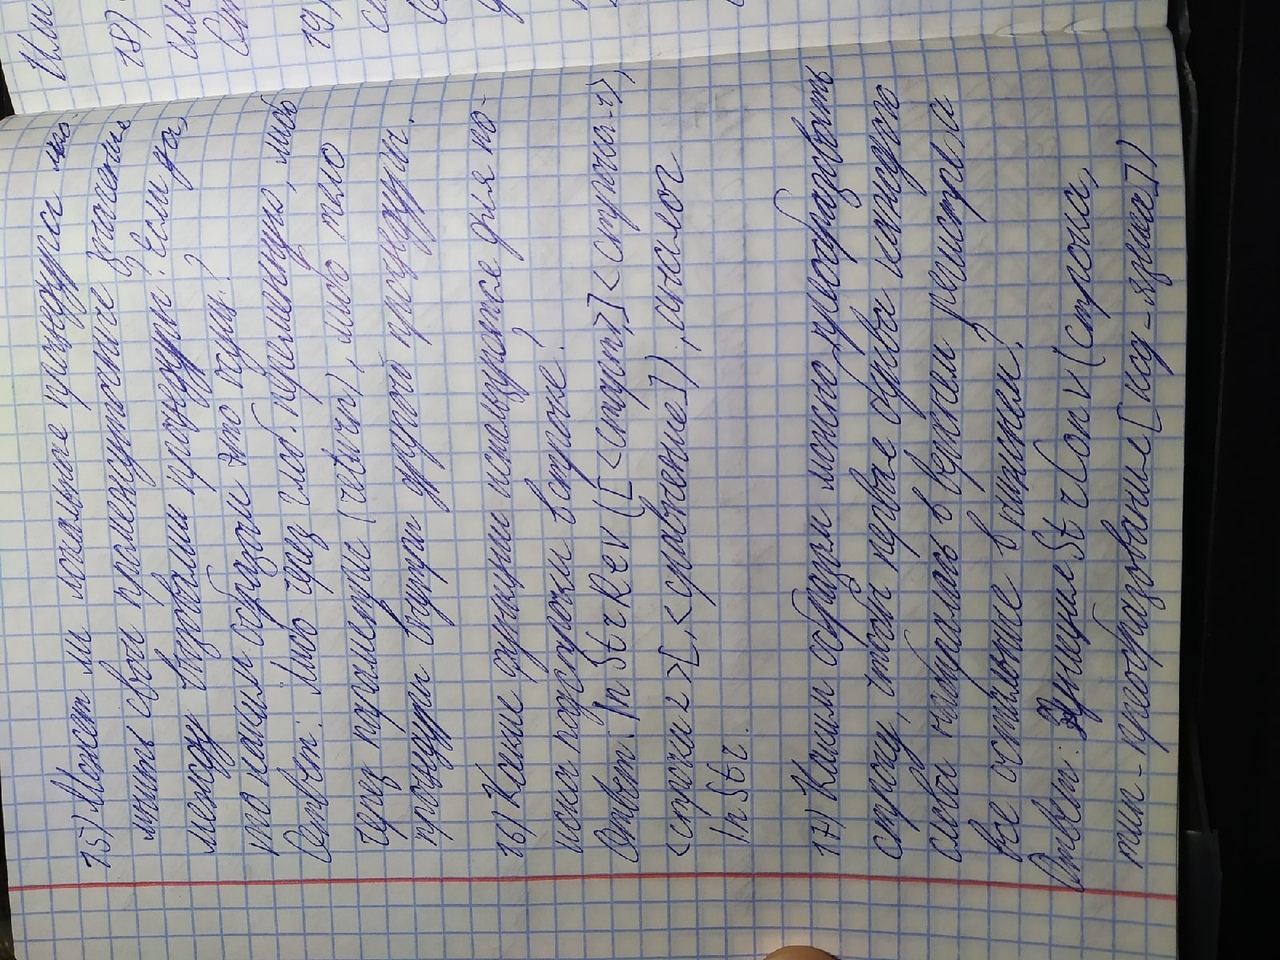 Или
18)
или
От
19)
ст
15) Может ли локальные процедура по-
мнить свои промежуточные значения
между вызовами процедуры? Если да,
то каким образом это осущ?
Ответ: Либо через глоб. переменную, либо
через параметры (return), либо тело
процедуры внутри другой процедуры.
16) Какие функции используются для по-
иска подстроки в строке?
Ответ: InStrRev([<старт>,]<строка-1>,
<строка 2>[,<сравнение>]), аналог
InStr.
17) Каким образом можно преобразовать
строку, чтобы первые буквы каждого
слова набирались в верхнем регистре, а
все остальные в нижнем?
Ответ: Функция StrConv(строка,
тип-преобразование[код-языка])